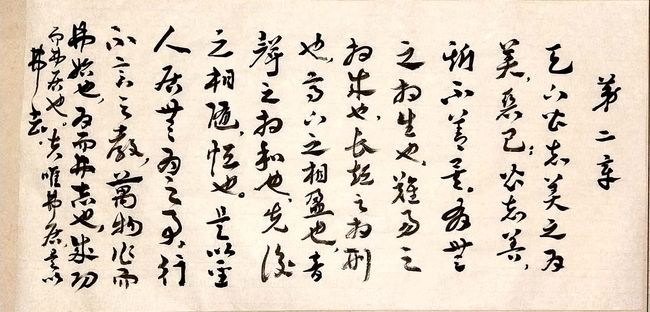 第二章
天下皆知美之为
美,恶已;皆知善,
斯不善矣。有無
之相生也,難易之
相成也,長短之相刑
也,高下之相盈也,音
聲之相和也,先後
之相隨,恒也。是以聖
人居無为之事,行
不言之教,萬物作而
弗始也,为而弗志也,成功
而弗居也。夫唯弗居,是以
弗去。